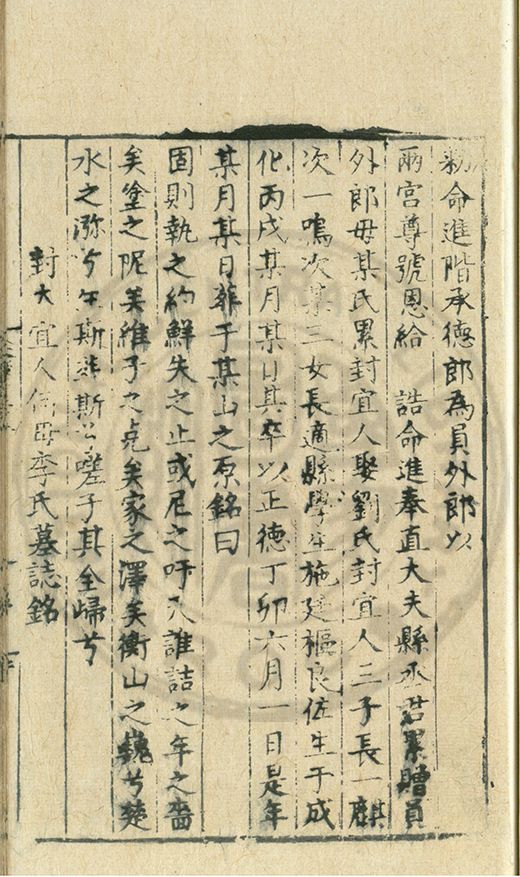 勑命進階承德郎為員外郎以
兩宫尊號恩給 誥命進奉直大夫縣丞君累贈員
外郎母某氏累封宜人娶劉氏封宜人三子長一麒
次一鳴次某三女長適縣學生施廷樞良佐生于成
化丙戌某月某日其卒以正德丁卯六月一日是年
某月某日葬于某山之原銘曰
固則執之約鮮失之止或尼之吁乂誰詰之年之嗇
矣塗之阨矣維子之克矣家之澤矣衡山之巍兮楚
水之瀰兮生斯葬斯兮嗟子其全歸兮
封太宜人伍母李氏墓誌銘